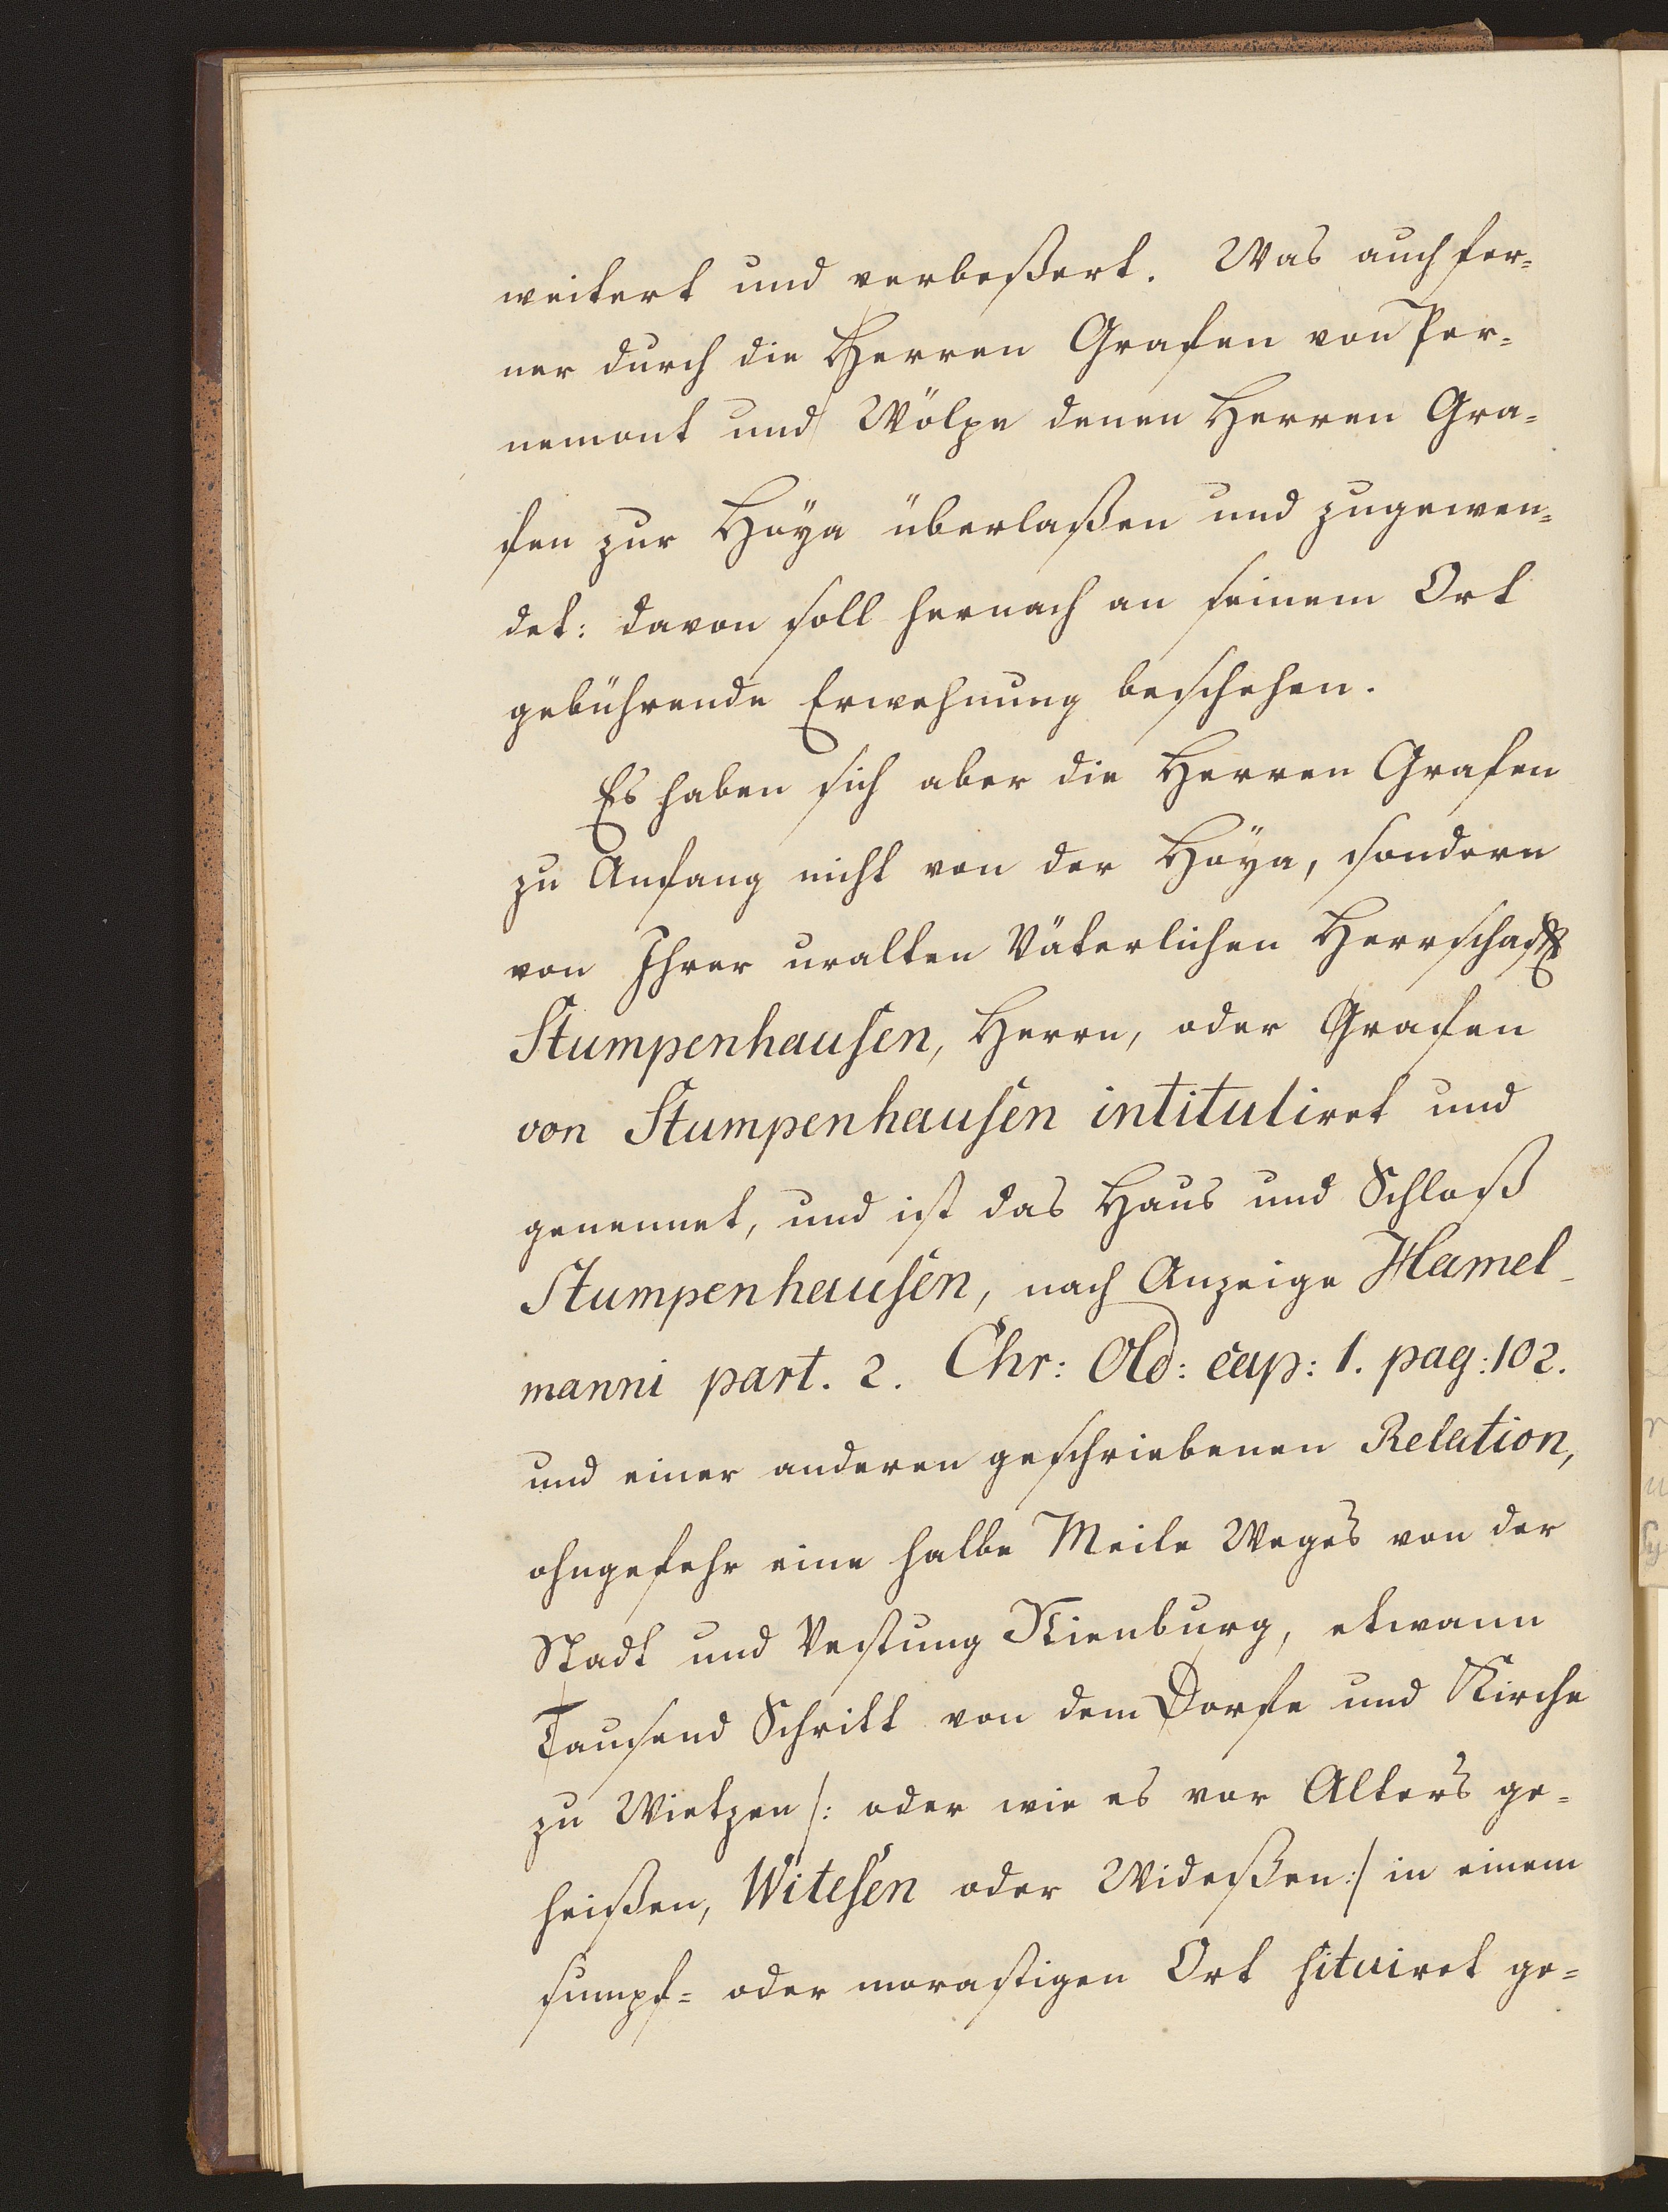 weitert und verbeßert. Was auch fer=
ner durch die Herren Grafen von Per=
nemont und Wölpe denen Herren Gra=
fen zur Hoÿa überlaßen und zugewen=
det: davon soll hernach an seinem Ort
gebührende Erwehnung beschehen.
Es haben sich aber die Herren Grafen
zu Anfang nicht von der Hoÿa, sondern
von Ihrer uralten Väterlichen Herrschafft
Stumpenhausen, Herrn, oder Grafen
von Stumpenhausen intituliret und
genennet, und ist das Haus und Schloß
Stumpenhausen, nach Anzeige Hamel-
manni part. 2. Chr: Old: cap: 1. pag: 102.
und einer anderen geschriebenen Relation,
ohngefehr eine halbe Meile Weges von der
Stadt und Vestung Nienburg, etwann
Tausend Schritt von dem Dorfe und Kirche
zu Wietzen /: oder wie es vor Alters ge=
heißen, Witesen oder Wideßen :/ in einem
sumpf= oder morastigen Ort situiret ge=